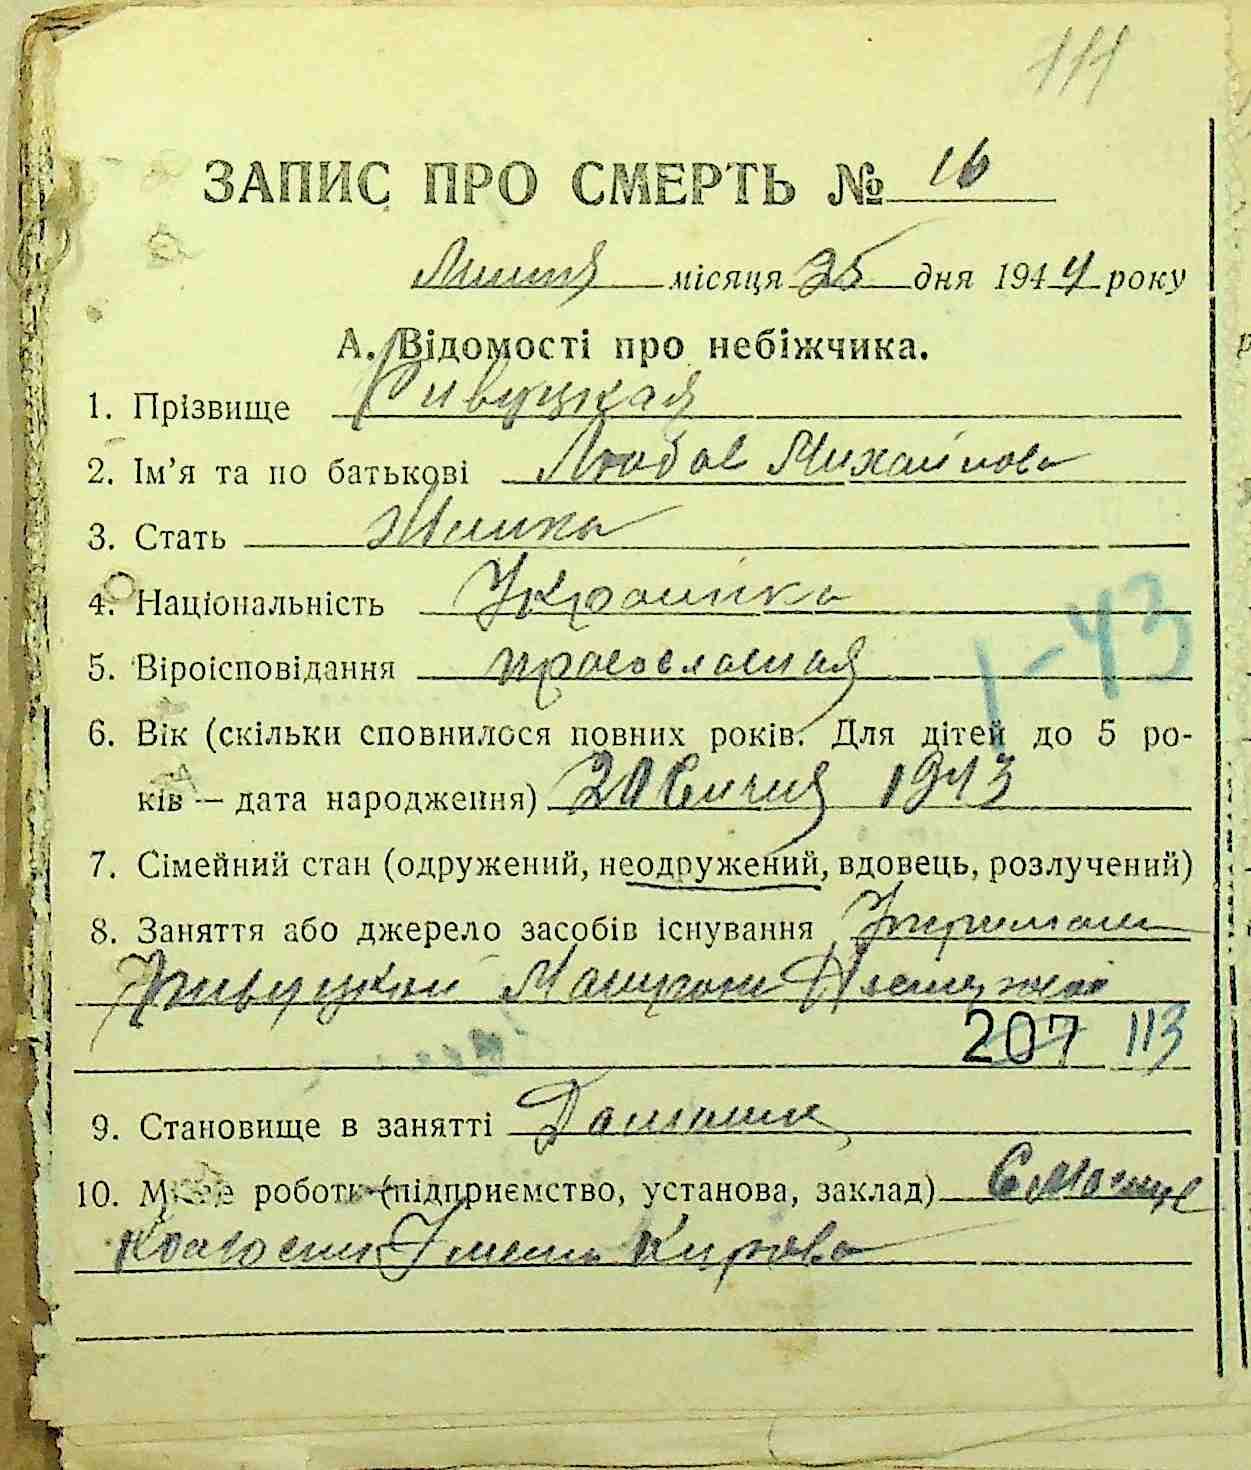 111
ЗАПИС ПРО СМЕРТЬ № 16
місяця 25 дня 1944 року
А. Відомості про небіжчика.
1. Прізвище Ривуцкая
2. Ім'я та по батькові Любов Михайлова
3. Стать Жинка
4. Національність Украинка
5. Віроісповідання православная
1-43
6. Вік (скільки сповнилося повних років. Для дітей до 5 ро-
ків — дата народження) 20 Сичня 1943
7. Сімейний стан (одружений, неодружений, вдовець, розлучений)
8. Заняття або джерело засобів існування
Ривуцкой
207 113
9. Становище в занятті
10. Місце роботи (підприємство, установа, заклад)
Имени Кирова